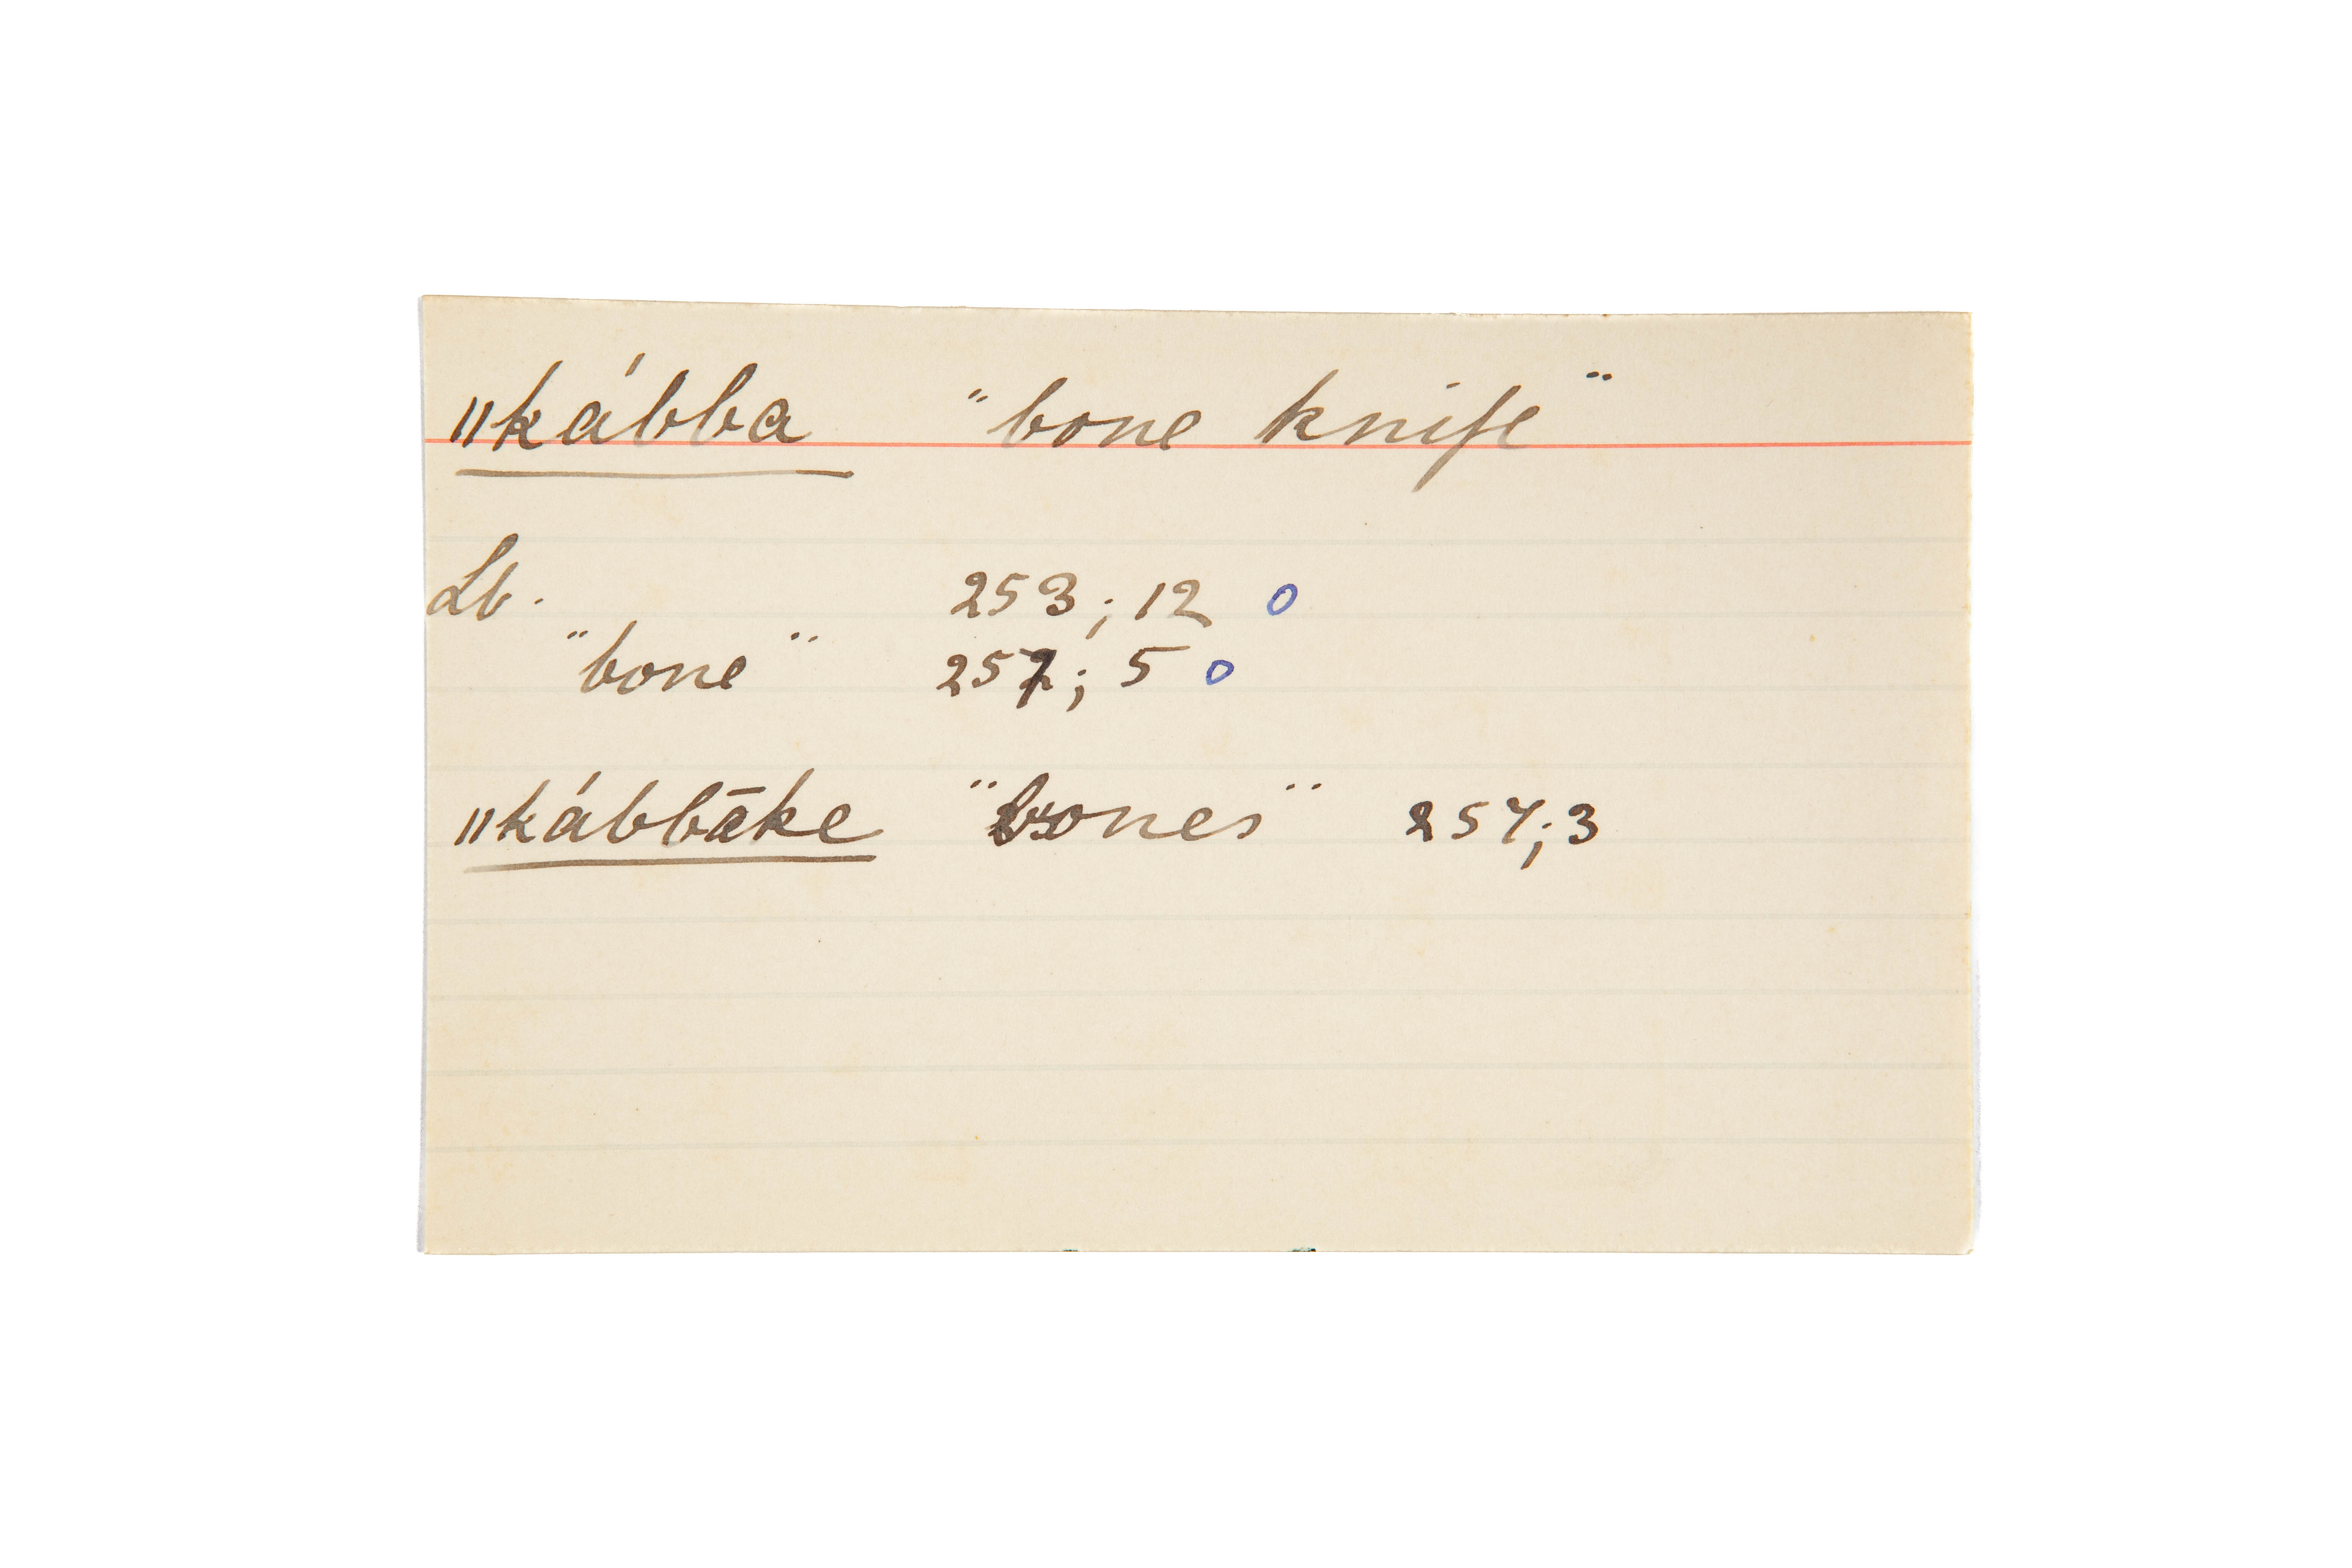 ǁkábba "bone knife"
Lb. 253; 12 o
"bone" 257; 5 o
ǁkábbāke "bones" 257; 3